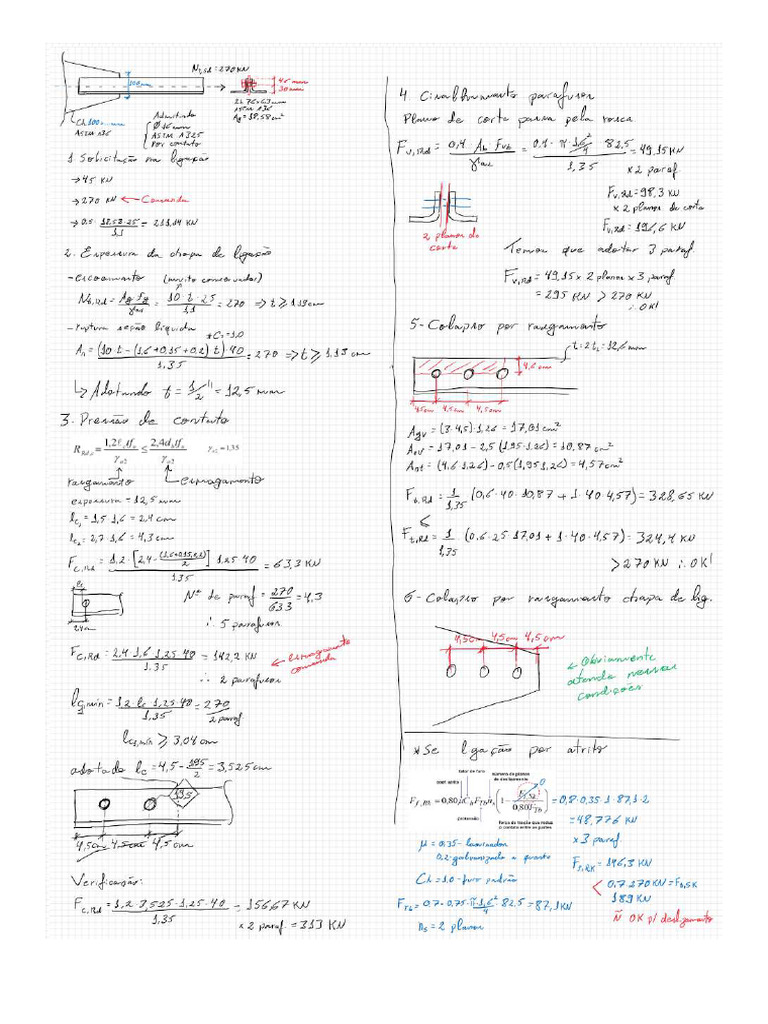 Nt,Sd = 270 KN
100mm
46 mm
30 mm
2L 76x63mm
ASTM A36
Ag = 18,58cm²
Ch.100mm
ASTM A36
Admitindo
Ø 16 mm
ASTM A325
Por contato
1. Solicitação na ligação
→ 45 KN
→ 270 KN ← Comanda
→ 0,5 · 18,58 · 25 / 1,1 = 211,14 KN
2. Espessura da chapa de ligação
- escoamento (muito conservador)
Nt,Rd = Ag fy / γa1 = 10 · t · 25 / 1,1 = 270 => t ≥ 1,19cm
- ruptura seção líquida
*Ct = 1,0
An = (10 · t - (1,6 + 0,15 + 0,2) t) · 40 / 1,35 = 270 => t ≥ 1,13 cm
↳ Adotando t = 1/2" = 12,5 mm
3. Pressão de contato
R Rd,c = 1,2ℓc t fu / γa2 ≤ 2,4 db t fu / γa2 γa2 = 1.35
rasgamento ← esmagamento
espessura = 12,5 mm
lc1 = 1,5 · 1,6 = 2,4 cm
lc2 = 2,7 · 1,6 = 4,3 cm
Fc,Rd = 1,2 · [2,4 - (1,6+0,15+0,2)/2] · 1,25 · 40 / 1,35 = 63,3 KN
lc
2,4 cm
Nº de paraf = 270 / 63,3 = 4,3
∴ 5 parafusos
Fc,Rd = 2,4 · 1,6 · 1,25 · 40 / 1,35 = 142,2 KN ← esmagamento comanda
∴ 2 parafusos
lc,min = 1,2 · lc · 1,25 · 40 / 1,35 = 270 / 2 paraf
lc,min ≥ 3,04 cm
adotado lc = 4,5 - 1,95 / 2 = 3,525cm
19,5
4,5cm 4,5cm 4,5 cm
Verificação:
Fc,Rd = 1,2 · 3,525 · 1,25 · 40 / 1,35 = 156,67 KN
x 2 paraf = 313 KN
4. Cisalhamento parafusos
Plano de corte passa pela rosca
Fv,Rd = 0,4 · Ab Fub / γa2 = 0,4 · π · 1,6²/4 · 82,5 / 1,35 = 49,15 KN
x 2 paraf.
Fv,Rd = 98,3 KN
x 2 planos de corte
Fv,Rd = 196,6 KN
2 planos de corte
Temos que adotar 3 paraf
Fv,Rd = 49,15 x 2 planos x 3 paraf.
= 295 KN > 270 KN
∴ OK!
5 - Colapso por rasgamento
t = 2·t1 = 12,6 mm
4,6 cm
4,5cm 4,5cm 4,5 cm
Agv = (3 · 4,5) · 1,26 = 17,01 cm²
Anv = 17,01 - 2,5 (1,95 · 1,26) = 10,87 cm²
Ant = (4,6 · 1,26) - 0,5 (1,95 · 1,26) = 4,57cm²
Ft,Rd = 1 / 1,35 (0,6 · 40 · 10,87 + 1 · 40 · 4,57) = 328,65 KN
≤
Ft,Rd = 1 / 1,35 (0,6 · 25 · 17,01 + 1 · 40 · 4,57) = 324,4 KN
> 270 KN ∴ OK!
6 - Colapso por rasgamento chapa de lig.
4,5cm 4,5cm 4,5 cm
← Obviamente
atende nessas
condições
* Se ligação por atrito
fator de furo
número de planos de deslizamento
coef. atrito
0
Ff,Rk = 0,80 μ Ch FTb ns (1 - Ft,Sk / 0,80FTb) = 0,8 · 0,35 · 1 · 87,1 · 2
protensão
força de tração que reduz o contato entre as partes
= 48,776 KN
x 3 paraf
μ = 0,35 - laminados
0,2 - galvanizado a quente
Ff,Rk = 146,3 KN
Ch = 1,0 - furo padrão
< 0,7 · 270 KN = Ft,Sk
189 KN
FTb = 0,7 · 0,75 · π · 1,6²/4 · 82,5 = 87,1 KN
ns = 2 planos
Ñ OK p/ deslizamento